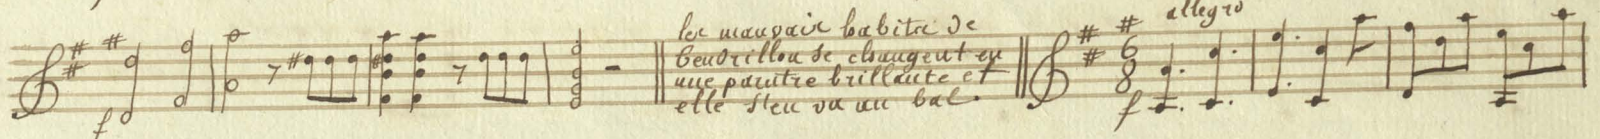 allegro
les mauvais habits de
Cendrillon se changent en
une parure brillante et
elle s'en va au bal.
f
6
8
f